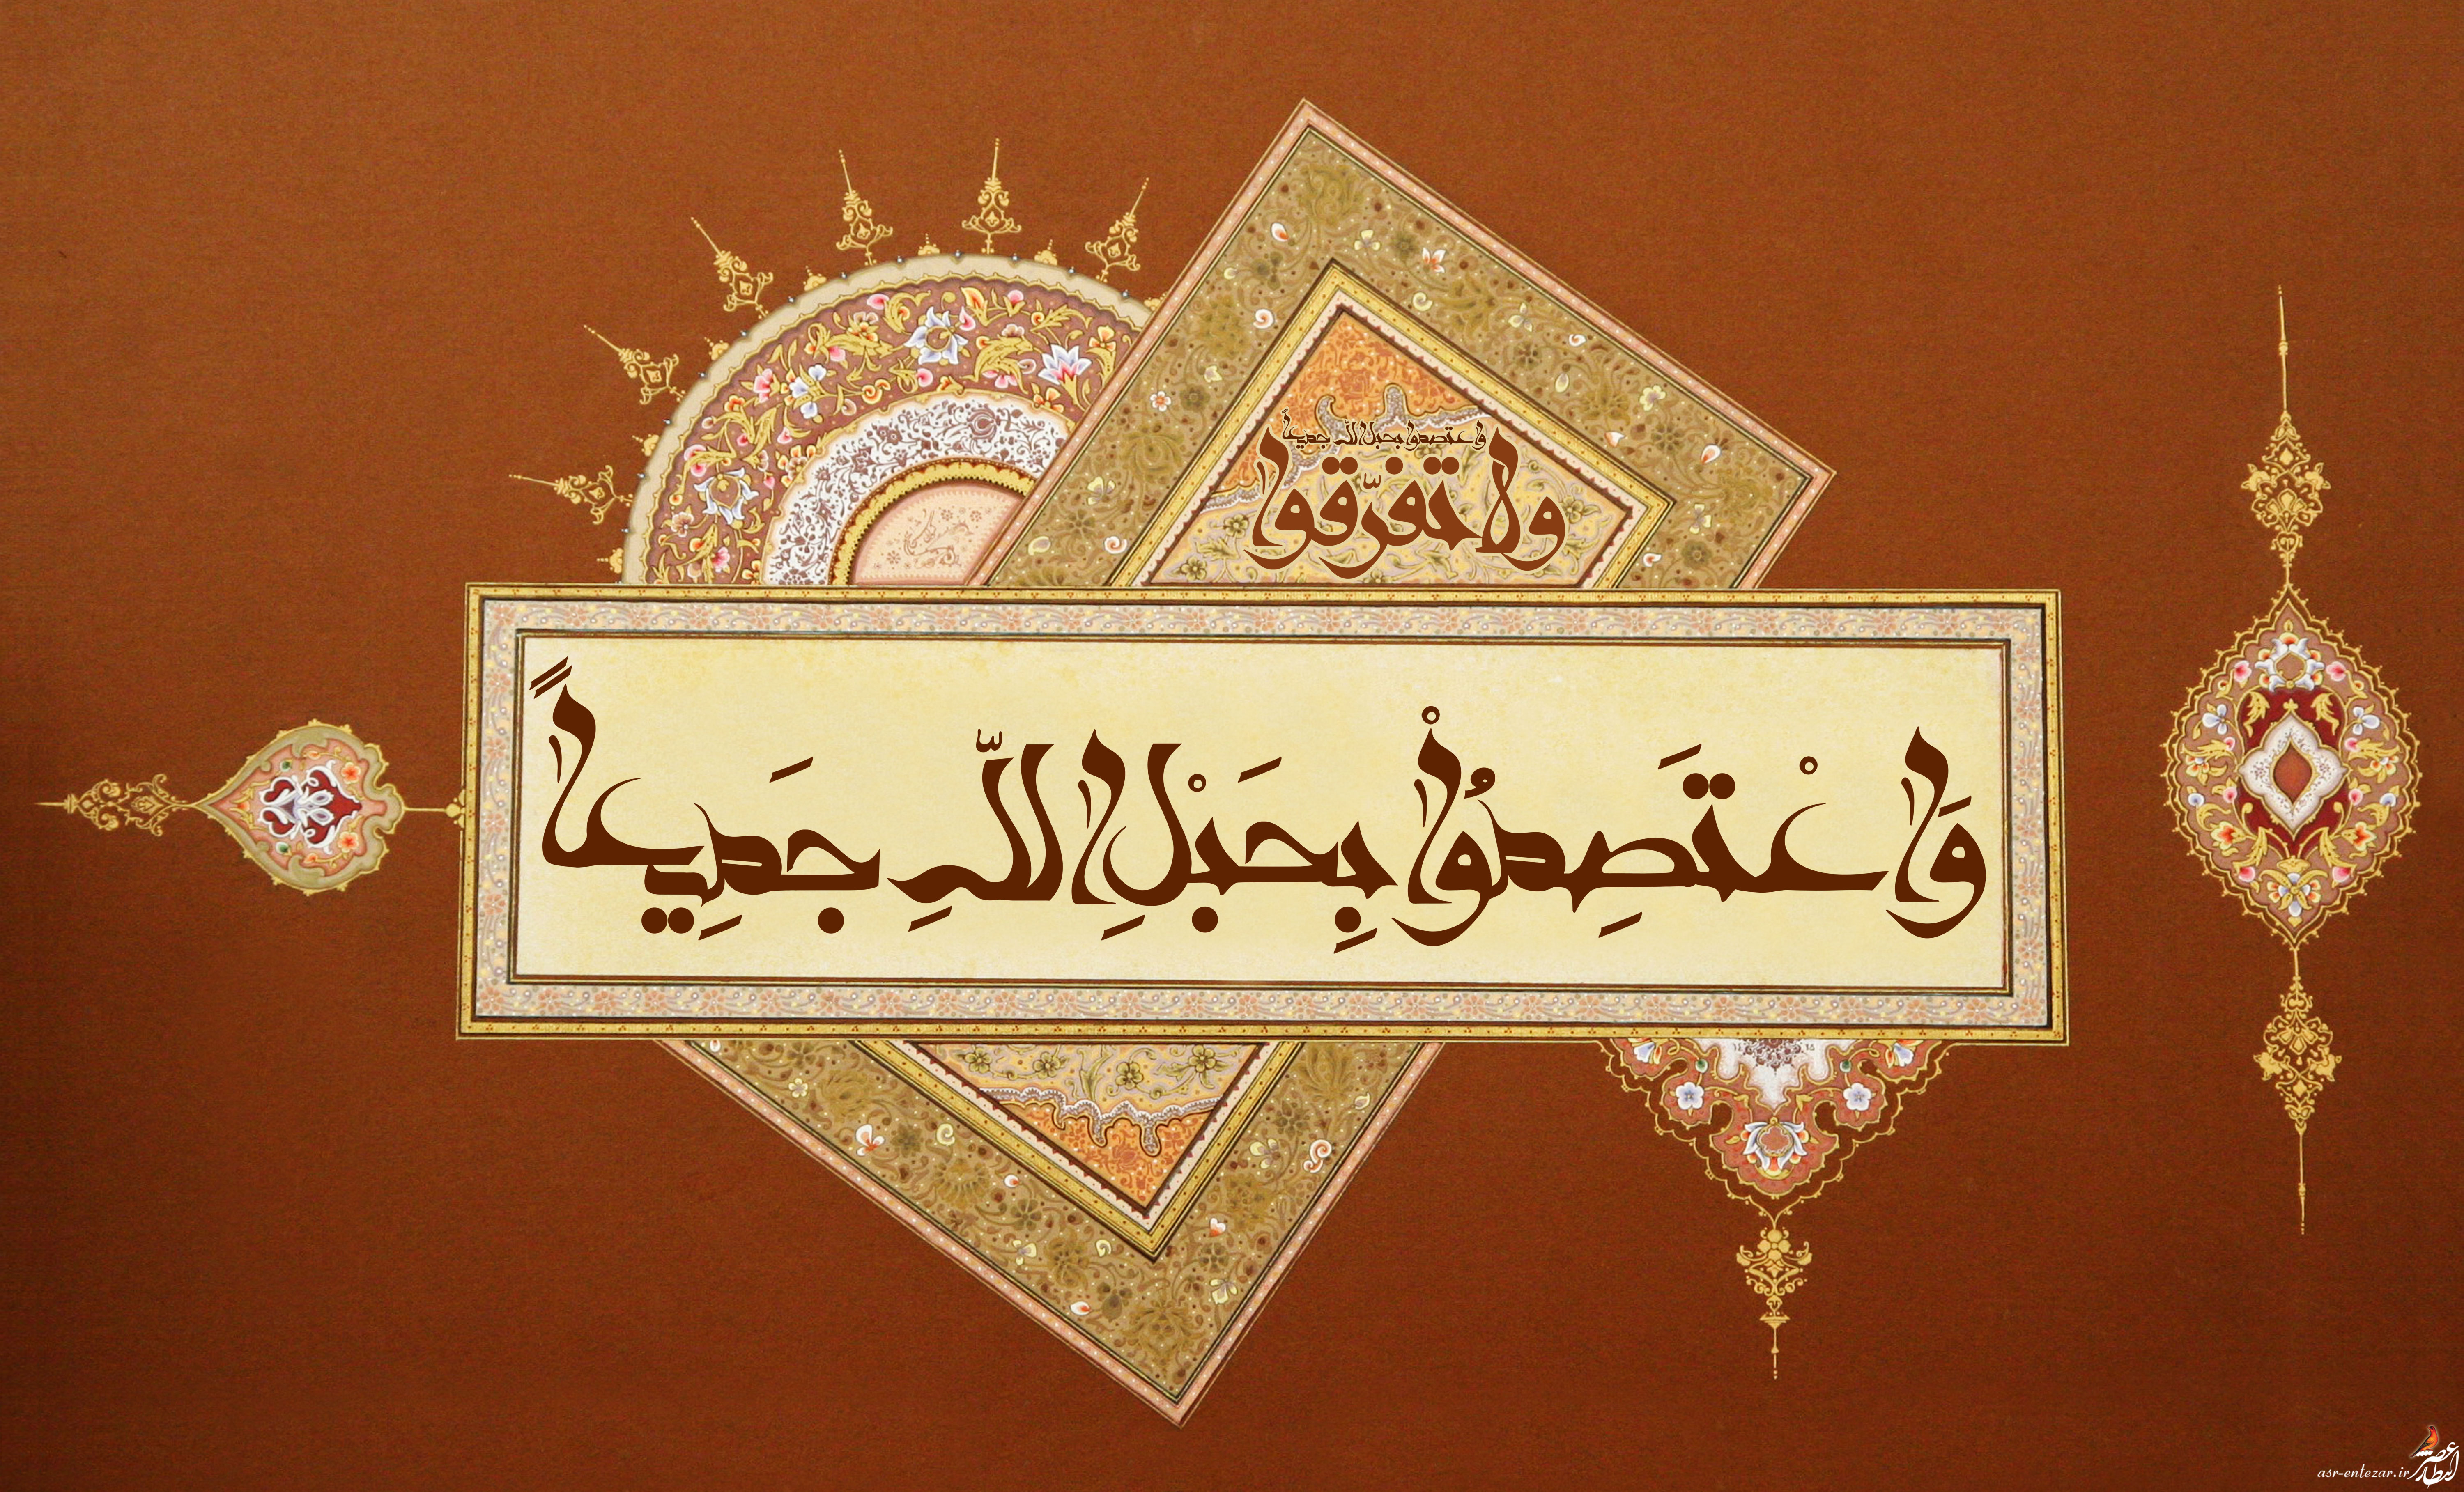 واعتصموا بحبل الله جميعاً
ولا تفرّقوا
وَاعْتَصِمُواْ بِحَبْلِ اللّهِ جَمِيعاً
عصر انتظار
asr-entezar.ir